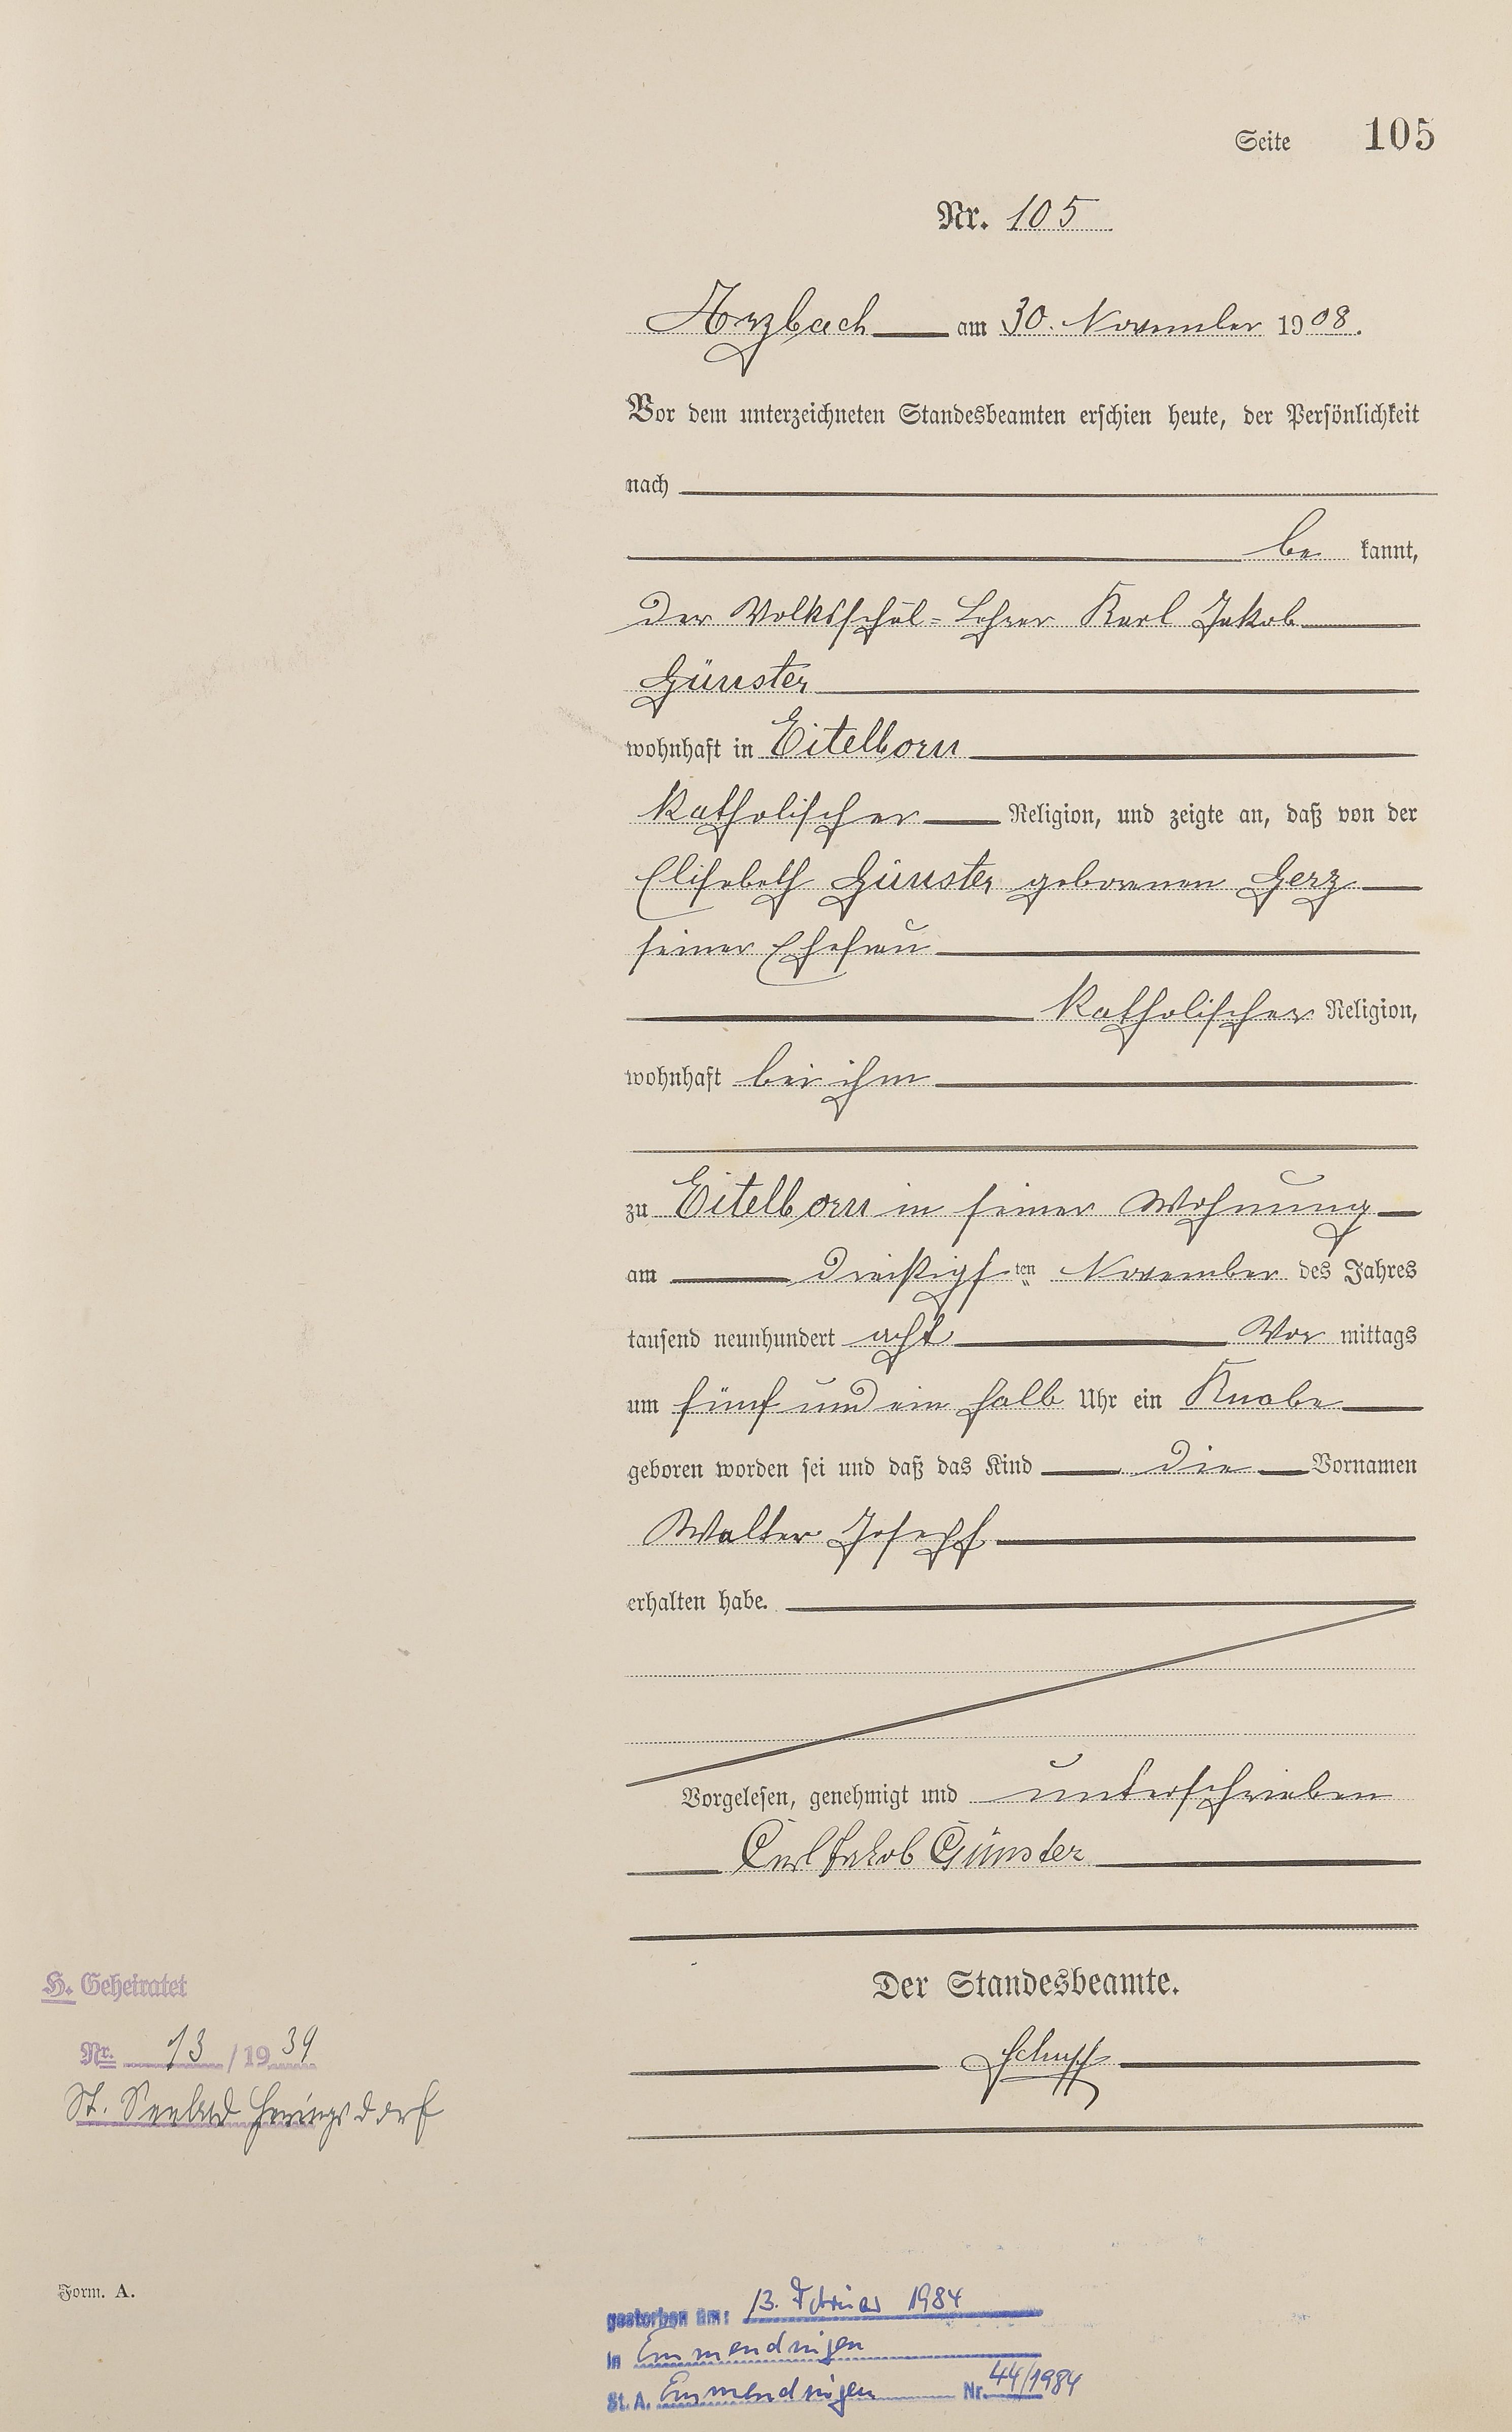 Seite 105
Nr. 105
Arzbach am 30. November 1908.
Vor dem unterzeichneten Standesbeamten erschien heute, der Persönlichkeit
nach
be kannt,
der Volksschul-Lehrer Karl Jakob
Günster
wohnhaft in Eitelborn
katholischer Religion, und zeigte an, daß von der
Elisabeth Günster geborenen Gerz
seiner Ehefrau
katholischer Religion,
wohnhaft bei ihm
zu Eitelborn in seiner Wohnung
am dreißigsten November des Jahres
tausend neunhundert acht Vor mittags
um fünf und ein halb Uhr ein Knabe
geboren worden sei und daß das Kind die Vornamen
Walter Joseph
erhalten habe.
Vorgelesen, genehmigt und unterschrieben
Carl Jakob Günster
Der Standesbeamte.
Schupp
H. Geheiratet
Nr. 13/1939
St. Seebad Heringsdorf
Form. A.
gestorben am: 13. Februar 1984
in Emmendingen
St. A. Emmendingen Nr. 44/1984